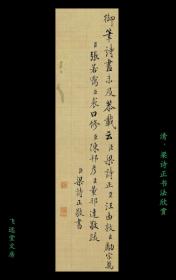 清·梁詩正书法欣赏
御筆詩畫亦及恭載云臣梁詩正臣汪由敦臣勵宗萬
臣張若靄臣裘曰修臣陳邦彥臣董邦達敬跋
臣梁詩正敬書
飞廷堂文房